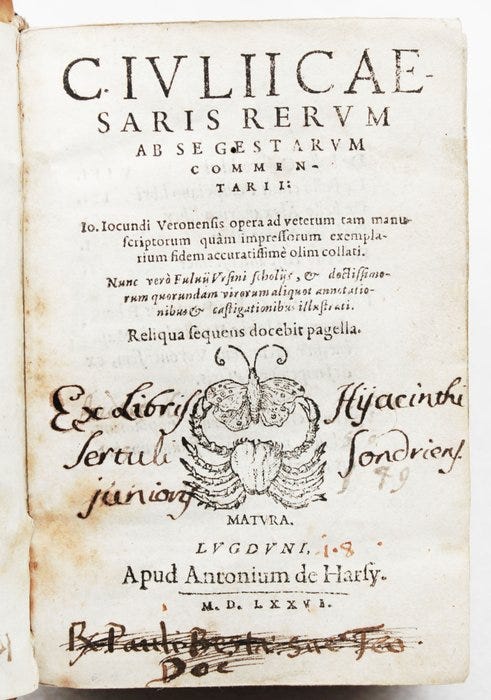 C. IVLII CAE-
SARIS RERVM
AB SE GESTARVM
COMMEN-
TARII:
Io. Iocundi Veronensis opera ad veterum tam manu-
scriptorum quàm impressorum exempla-
rium fidem accuratissimè olim collati.
Nunc verò Fuluij Vrsini scholijs, & doctissimo-
rum quorundam virorum aliquot annotatio-
nibus & castigationibus illustrati.
Reliqua sequens docebit pagella.
Ex Libris Hijacinthi
Sertuli Sondriens.
junioris
MATVRA.
LVGDVNI, 1.8
Apud Antonium de Harsy.
M. D. LXXVI.
Pauli
Doc